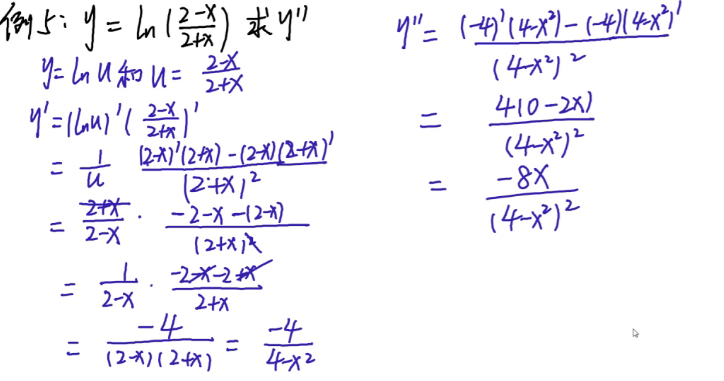 例5: y = ln(\frac{2-x}{2+x}) 求y''
y = ln u 和 u = \frac{2-x}{2+x}
y' = (ln u)' (\frac{2-x}{2+x})'
= \frac{1}{u} \frac{(2-x)'(2+x) - (2-x)(2+x)'}{(2+x)^2}
= \frac{2+x}{2-x} \cdot \frac{-2-x-(2-x)}{(2+x)^2}
= \frac{1}{2-x} \cdot \frac{-2-x-2+x}{2+x}
= \frac{-4}{(2-x)(2+x)} = \frac{-4}{4-x^2}
y'' = \frac{(-4)'(4-x^2) - (-4)(4-x^2)'}{(4-x^2)^2}
= \frac{4(0-2x)}{(4-x^2)^2}
= \frac{-8x}{(4-x^2)^2}